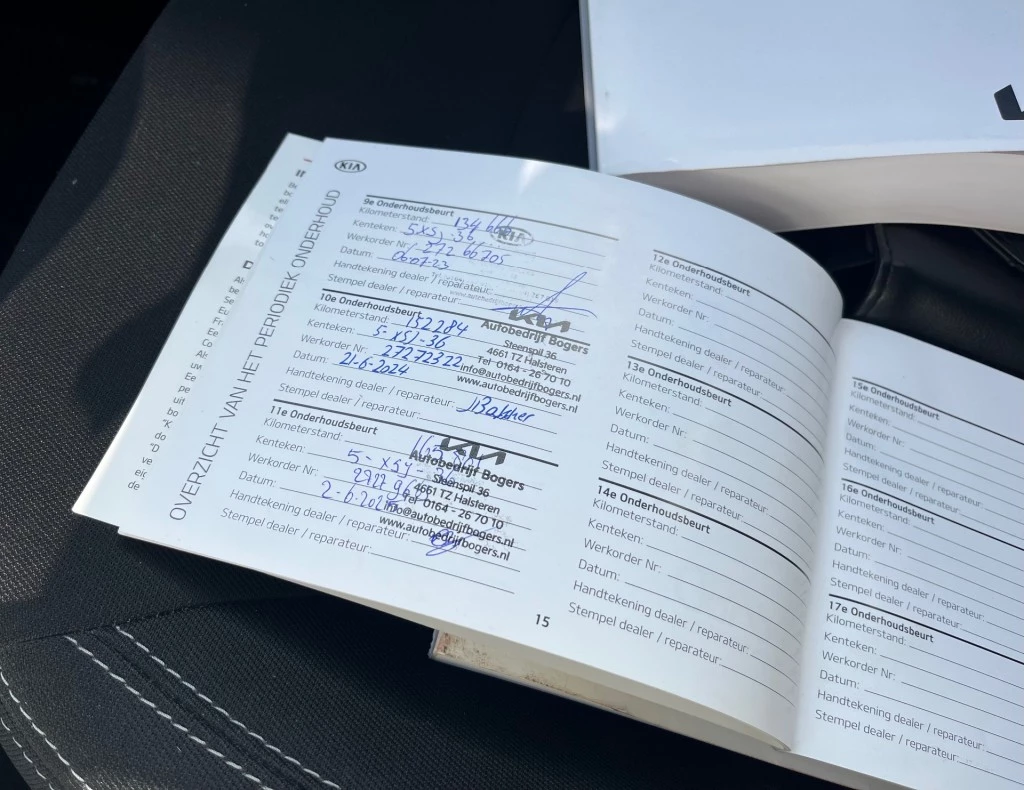 KIA
OVERZICHT VAN HET PERIODIEK ONDERHOUD
9e Onderhoudsbeurt
Kilometerstand: 134
Kenteken: 5XSJ-36
Werkorder Nr: 27266705
Datum: 06-07-23
Handtekening dealer / reparateur:
Stempel dealer / reparateur:
KIA
10e Onderhoudsbeurt
Kilometerstand: 152284
Kenteken: 5-XSJ-36
Werkorder Nr: 27272322
Datum: 21-6-2024
Handtekening dealer / reparateur:
Stempel dealer / reparateur:
KIA
Autobedrijf Bogers
Steenspil 36
4661 TZ Halsteren
Tel 0164 - 26 70 10
info@autobedrijfbogers.nl
www.autobedrijfbogers.nl
11e Onderhoudsbeurt
Kilometerstand:
Kenteken: 5-XSJ-36
Werkorder Nr:
Datum:
Handtekening dealer / reparateur:
Stempel dealer / reparateur:
KIA
Autobedrijf Bogers
Steenspil 36
4661 TZ Halsteren
Tel 0164 - 26 70 10
info@autobedrijfbogers.nl
www.autobedrijfbogers.nl
15
12e Onderhoudsbeurt
Kilometerstand:
Kenteken:
Werkorder Nr:
Datum:
Handtekening dealer / reparateur:
Stempel dealer / reparateur:
13e Onderhoudsbeurt
Kilometerstand:
Kenteken:
Werkorder Nr:
Datum:
Handtekening dealer / reparateur:
Stempel dealer / reparateur:
14e Onderhoudsbeurt
Kilometerstand:
Kenteken:
Werkorder Nr:
Datum:
Handtekening dealer / reparateur:
Stempel dealer / reparateur:
15e Onderhoudsbeurt
Kilometerstand:
Kenteken:
Werkorder Nr:
Datum:
Handtekening dealer / reparateur:
Stempel dealer / reparateur:
16e Onderhoudsbeurt
Kilometerstand:
Kenteken:
Werkorder Nr:
Datum:
Handtekening dealer / reparateur:
Stempel dealer / reparateur:
17e Onderhoudsbeurt
Kilometerstand:
Kenteken:
Werkorder Nr:
Datum:
Handtekening dealer / reparateur:
Stempel dealer / reparateur: